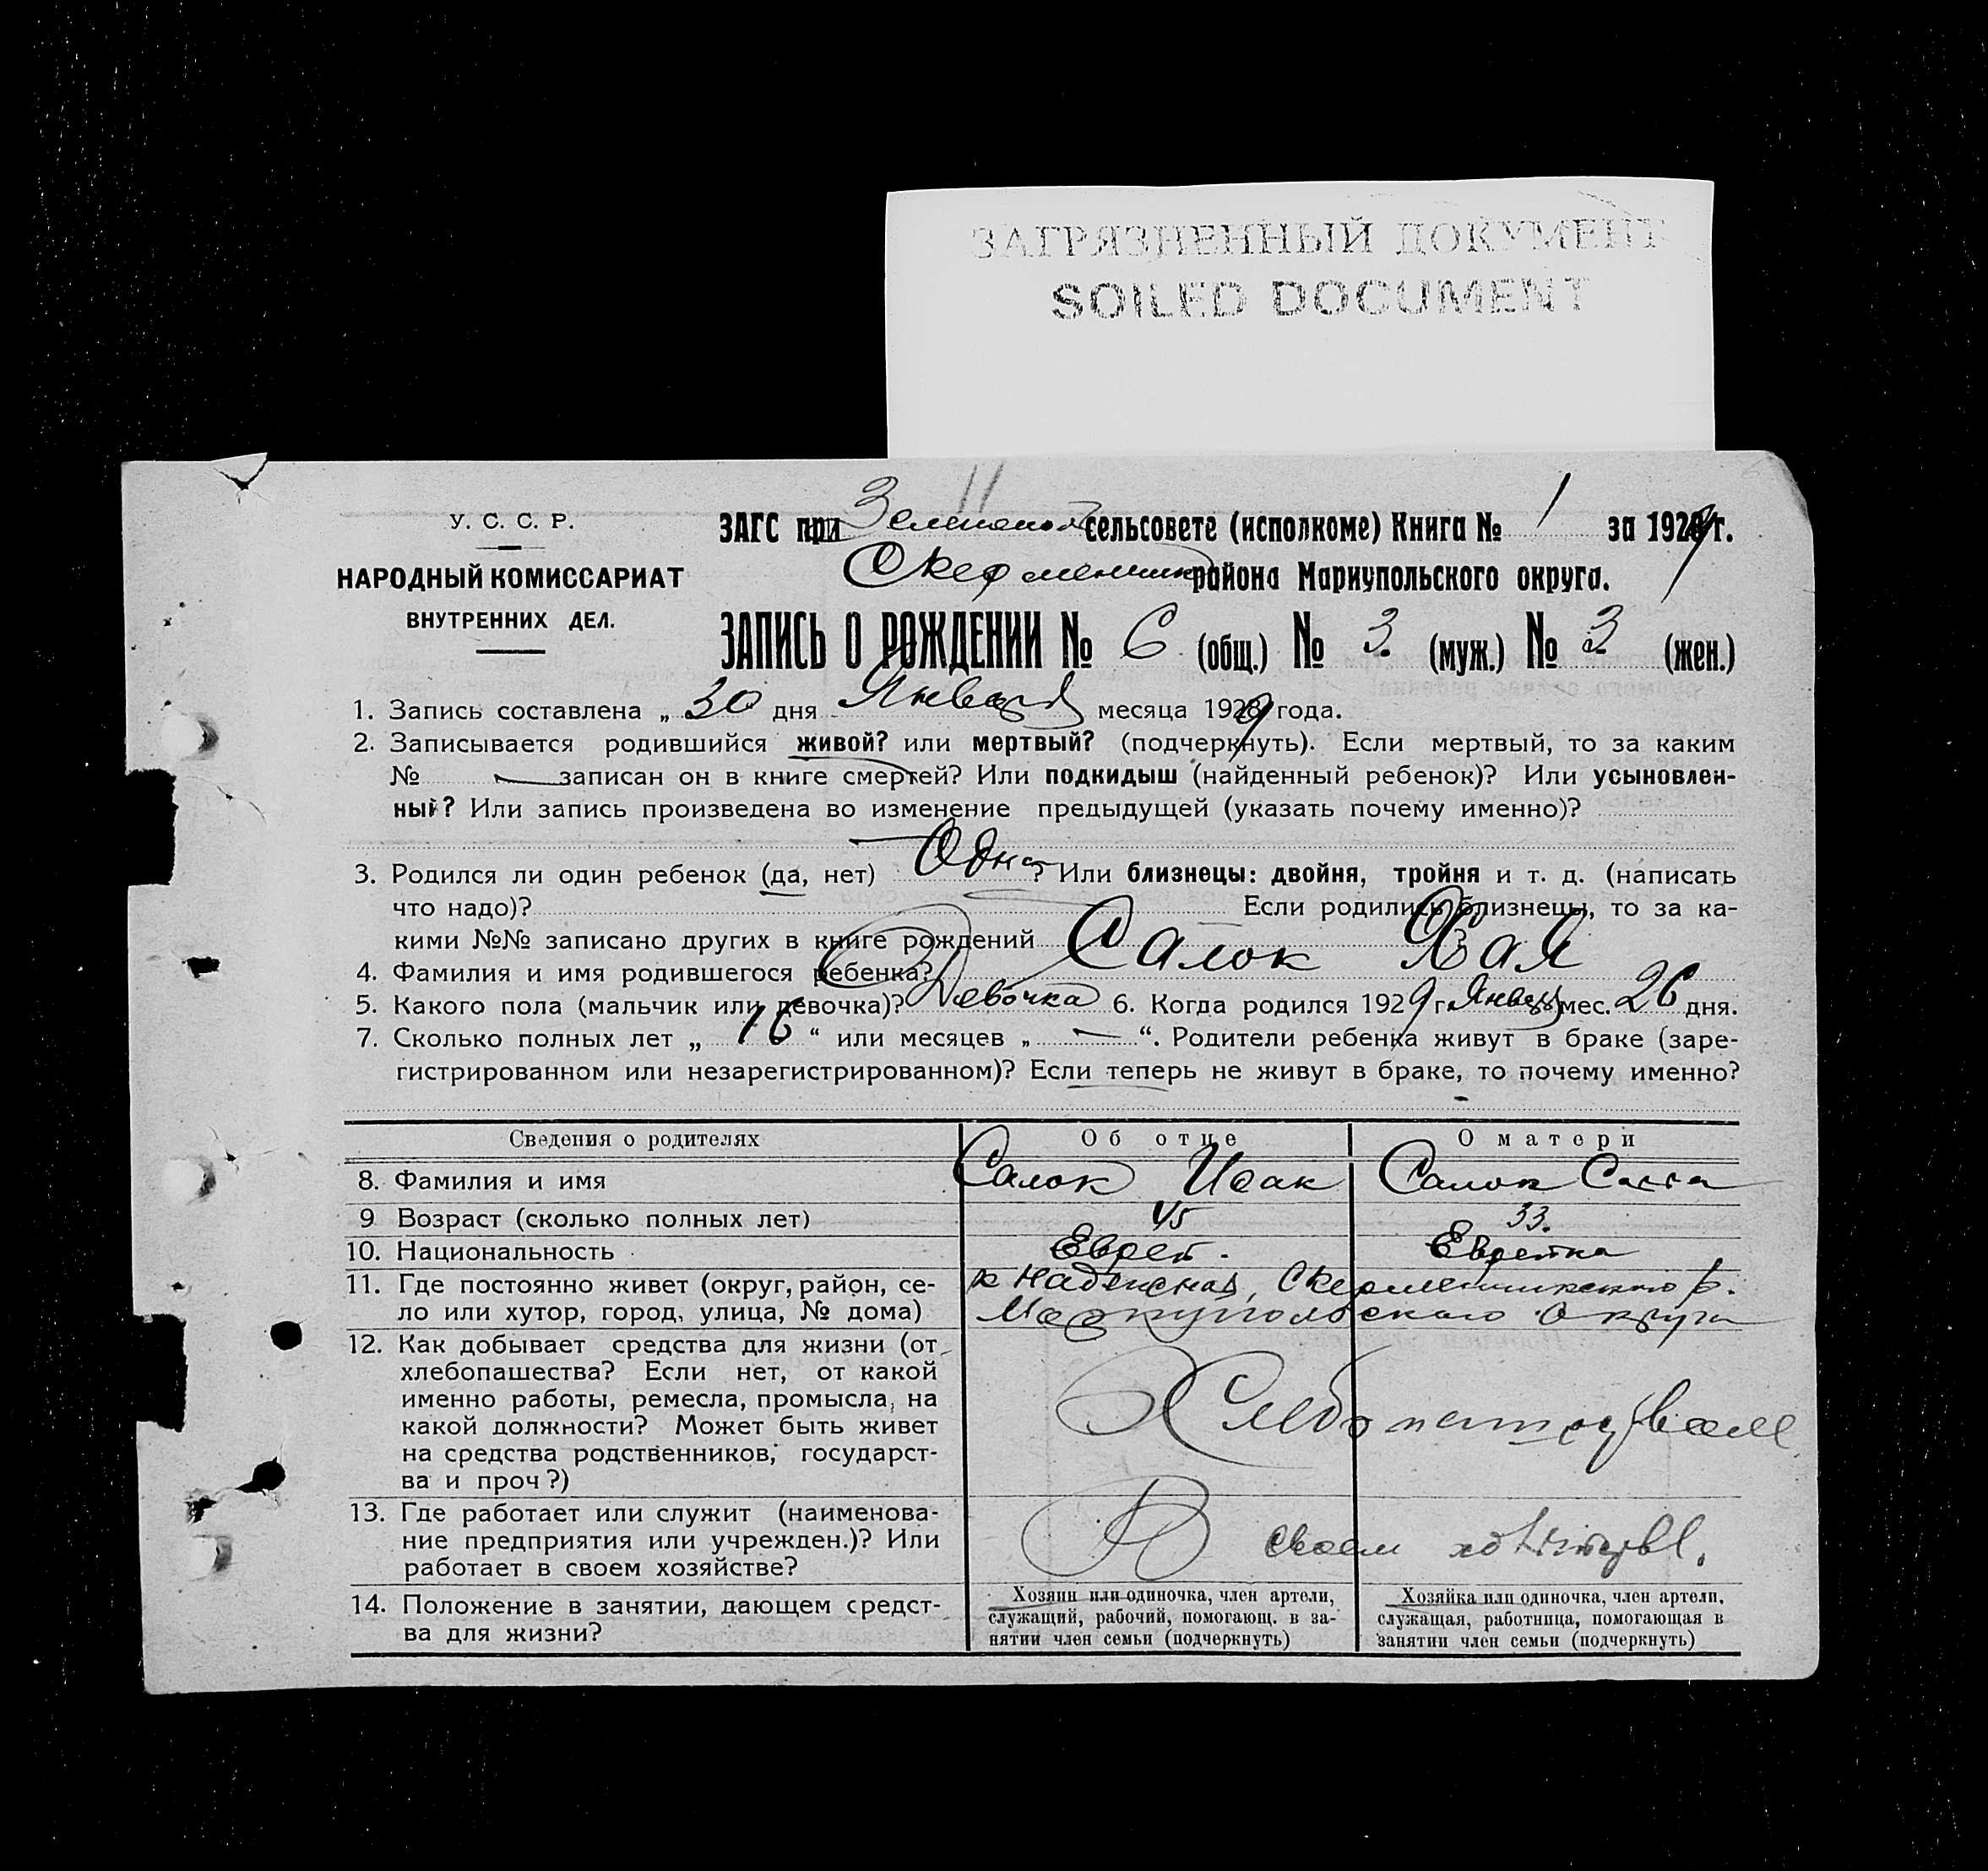 ЗАГРЯЗНЕННЫЙ ДОКУМЕНТ
SOILED DOCUMENT
11
У. С. С. Р.
НАРОДНЫЙ КОМИССАРИАТ
ВНУТРЕННИХ ДЕЛ.
ЗАГС при сельсовете (исполкоме) Книга № 1 за 1929 г.
района Мариупольского округа.
ЗАПИСЬ О РОЖДЕНИИ № 6 (общ.) № 3 (муж.) № 3 (жен.)
1. Запись составлена „ 30 дня Января месяца 1929 года.
2. Записывается родившийся живой? или мертвый? (подчеркнуть). Если мертвый, то за каким
№ записан он в книге смертей? Или подкидыш (найденный ребенок)? Или усыновлен-
ный? Или запись произведена во изменение предыдущей (указать почему именно)?
3. Родился ли один ребенок (да, нет) Одна ? Или близнецы: двойня, тройня и т. д. (написать
что надо)? Если родились близнецы, то за ка-
кими №№ записано других в книге рождений
4. Фамилия и имя родившегося ребенка? Салок Хая
5. Какого пола (мальчик или девочка)? Девочка 6. Когда родился 1929 г. Январ мес. 26 дня.
7. Сколько полных лет „ 16 “ или месяцев „ — “. Родители ребенка живут в браке (заре-
гистрированном или незарегистрированном)? Если теперь не живут в браке, то почему именно?
Сведения о родителях Об отце О матери
8. Фамилия и имя Салок Исак Салок
9 Возраст (сколько полных лет) 45 33.
10. Национальность Еврей. Еврейка
11. Где постоянно живет (округ, район, се-
ло или хутор, город, улица, № дома)
к Надежная, р.
Мариупольского Округа
12. Как добывает средства для жизни (от
хлебопашества? Если нет, от какой
именно работы, ремесла, промысла, на
какой должности? Может быть живет
на средства родственников, государст-
ва и проч ?)
Хлебопашеством
13. Где работает или служит (наименова-
ние предприятия или учрежден.)? Или
работает в своем хозяйстве?
В своем хозяйстве.
14. Положение в занятии, дающем средст-
ва для жизни?
Хозяин или одиночка, член артели,
служащий, рабочий, помогающ. в за-
нятии член семьи (подчеркнуть)
Хозяйка или одиночка, член артели,
служащая, работница, помогающая в
занятии член семьи (подчеркнуть)